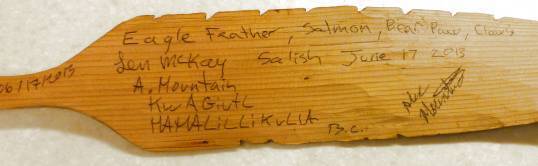 Eagle Feather, Salmon, Bear Paw, Claws
Len McKay Salish June 17 2013
06/17/2013
A. Mountain
KwAGiutL
MAMALiLLiKuLLA
B.C.